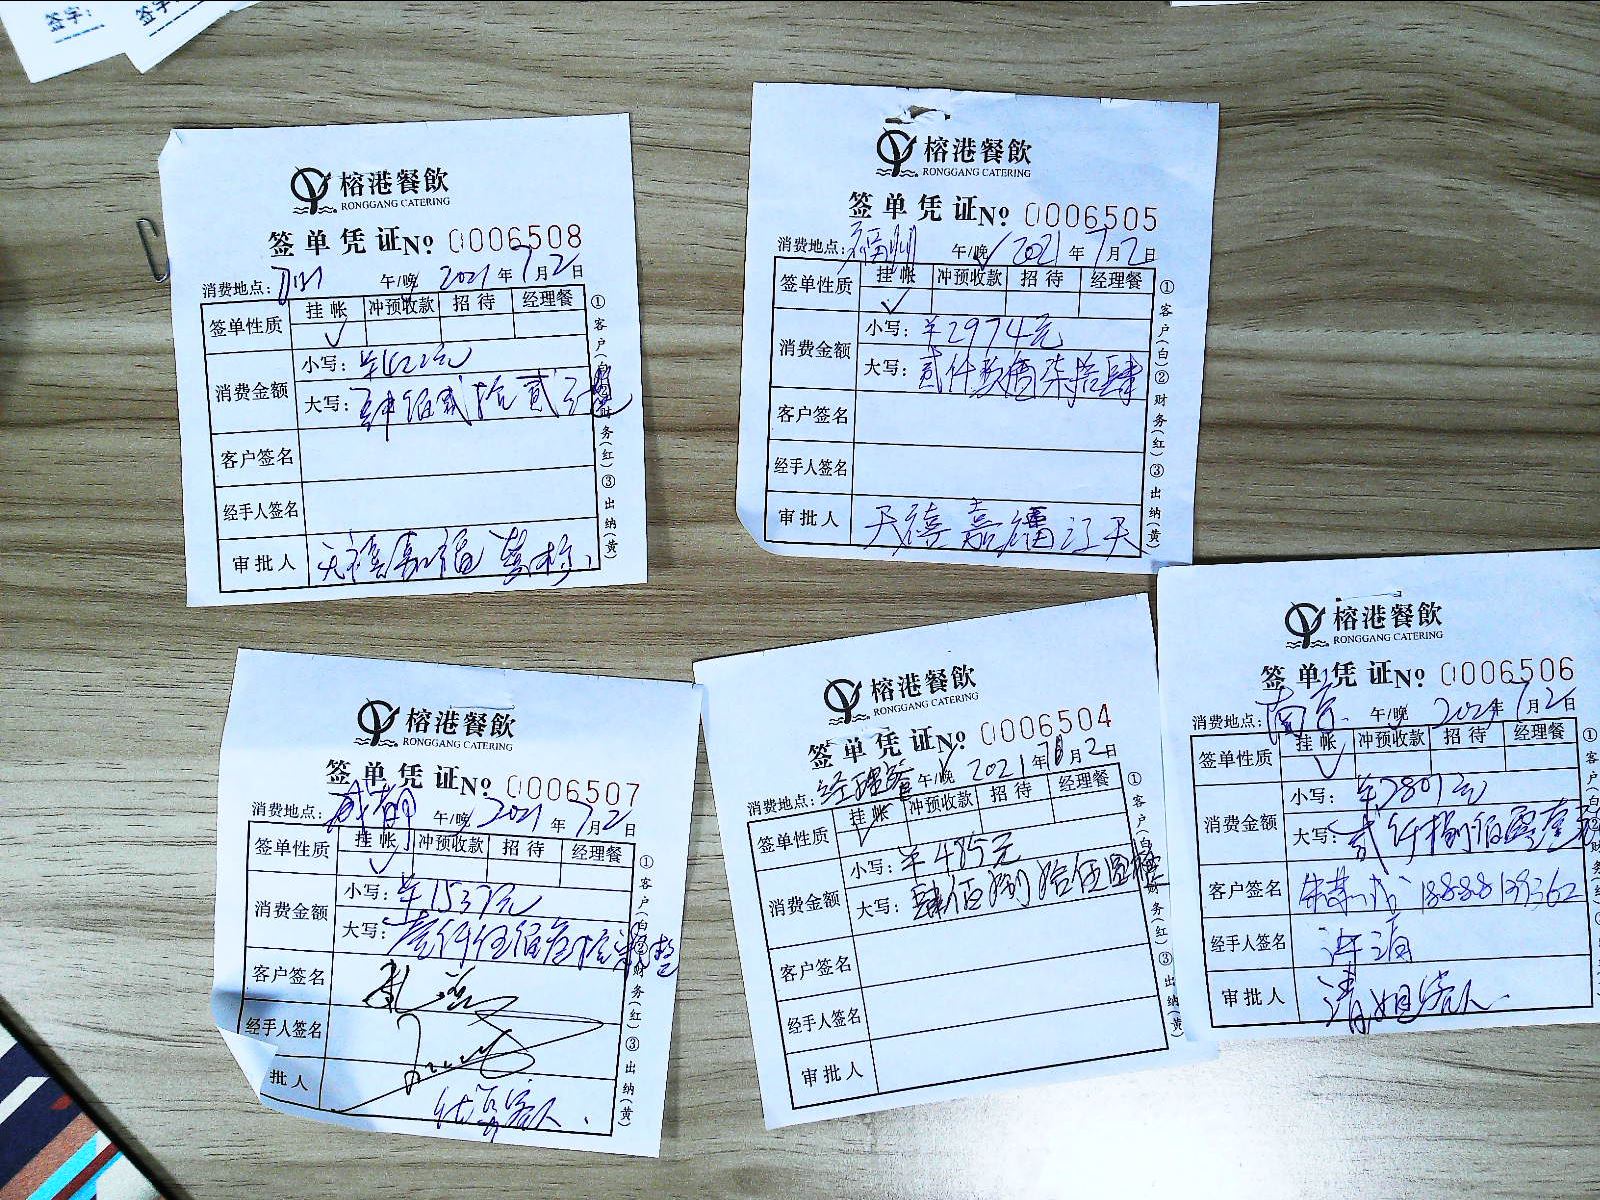 签字:
签字:
榕港餐飲
RONGGANG CATERING
签单凭证No 0006508
消费地点: 午/晚 2021年7月2日
签单性质 挂帐 冲预收款 招待 经理餐
✓
消费金额 小写: ¥422元
大写: 肆佰贰拾贰元整
客户签名
经手人签名
审批人 天禧嘉福
①客户(白)②财务(红)③出纳(黄)
榕港餐飲
RONGGANG CATERING
签单凭证No 0006505
消费地点: 福州 午/晚 2021年7月2日
签单性质 挂帐 冲预收款 招待 经理餐
✓
消费金额 小写: ¥2974元
大写: 贰仟玖佰柒拾肆
客户签名
经手人签名
审批人 天禧嘉福江天
①客户(白)②财务(红)③出纳(黄)
榕港餐飲
RONGGANG CATERING
签单凭证No 0006507
消费地点: 成都 午/晚 2021年7月2日
签单性质 挂帐 冲预收款 招待 经理餐
✓
消费金额 小写: ¥1537元
大写: 壹仟伍佰叁拾 整
客户签名
经手人签名
批人 客人
①客户(白)②财务(红)③出纳(黄)
榕港餐飲
RONGGANG CATERING
签单凭证No 0006504
消费地点: 经理餐 午/晚 2021年7月2日
签单性质 挂帐 冲预收款 招待 经理餐
✓
消费金额 小写: ¥485元
大写: 肆佰捌拾伍圆整
客户签名
经手人签名
审批人
①客户(白)②财务(红)③出纳(黄)
榕港餐飲
RONGGANG CATERING
签单凭证No 0006506
消费地点: 南京 午/晚 2021年7月2日
签单性质 挂帐 冲预收款 招待 经理餐
✓
消费金额 小写: ¥2801元
大写: 贰仟捌佰零壹
客户签名 18888139362
经手人签名 许清
审批人 清姐客人
①客户(白)